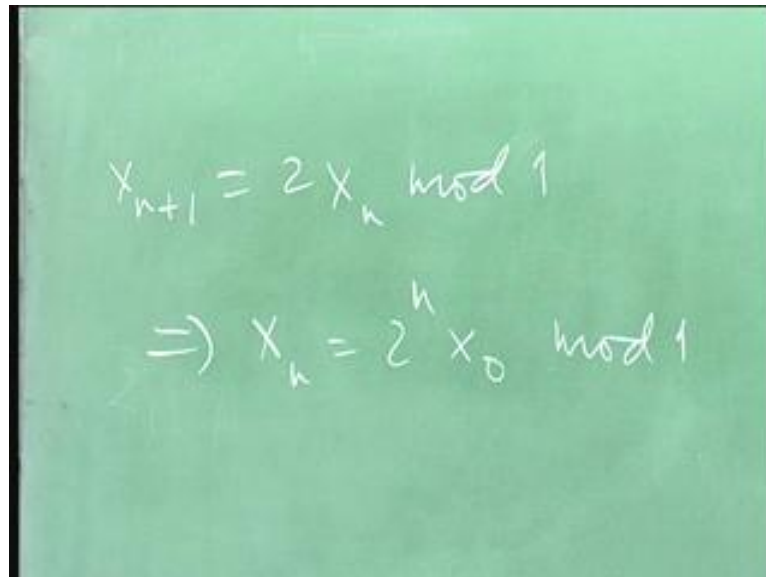 xₙ₊₁ = 2xₙ mod 1
⇒ xₙ = 2ⁿx₀ mod 1